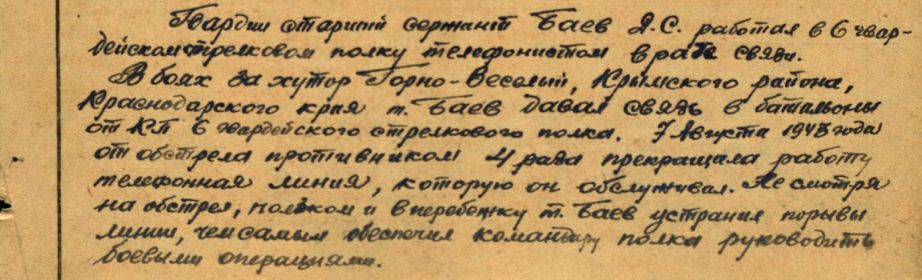 Гвардии старший сержант Баев Д.С. работая в 6 гвар-
дейском стрелковом полку телефонистом в роте связи.
В боях за хутор Горно-Веселый, Крымского района,
Краснодарского края т. Баев давал связь в батальоны
от КП 6 гвардейского стрелкового полка. 7 Августа 1943 года
от обстрела противником 4 раза прекращала работу
телефонная линия, которую он обслуживал. Не смотря
на обстрел, ползком и вперебежку т. Баев устранил порывы
линии, чем самым обеспечил командиру полка руководить
боевыми операциями.